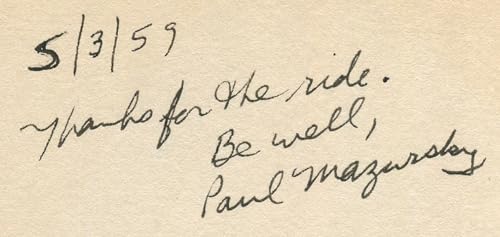 5/3/59
Thanks for the ride.
Be well,
Paul Mazursky